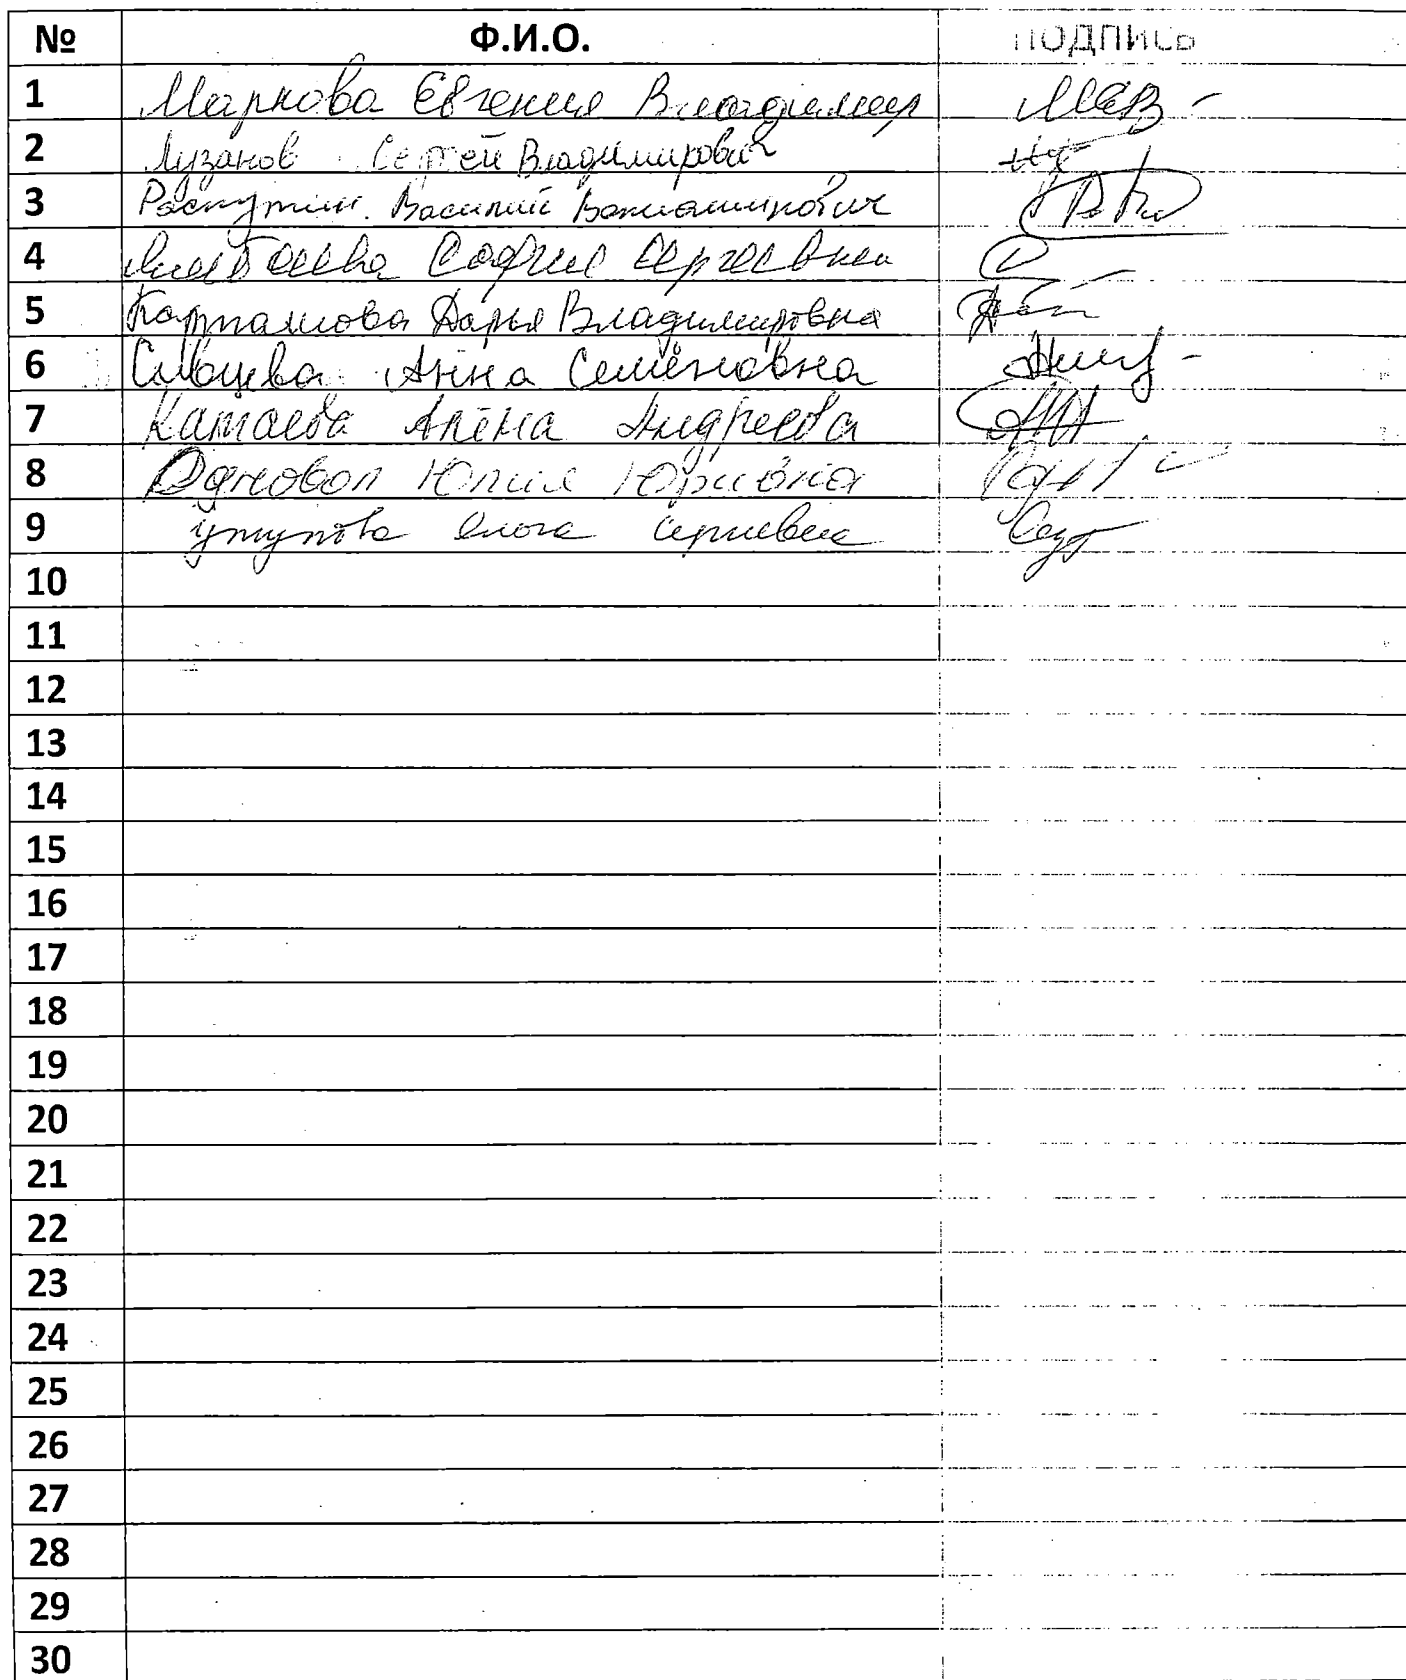 № Ф.И.О. ПОДПИСЬ
1 Маркова Евгения Владимир
2 Лузанов Сергей Владимирович
3 Распутин. Василий
4 София Сергеевна
5 Карташова Дарья Владимировна
6 Анна Семёновна
7 Катаева Алёна Андреевна
8 Юлия Юрьевна
9 Сергеевна
10
11
12
13
14
15
16
17
18
19
20
21
22
23
24
25
26
27
28
29
30